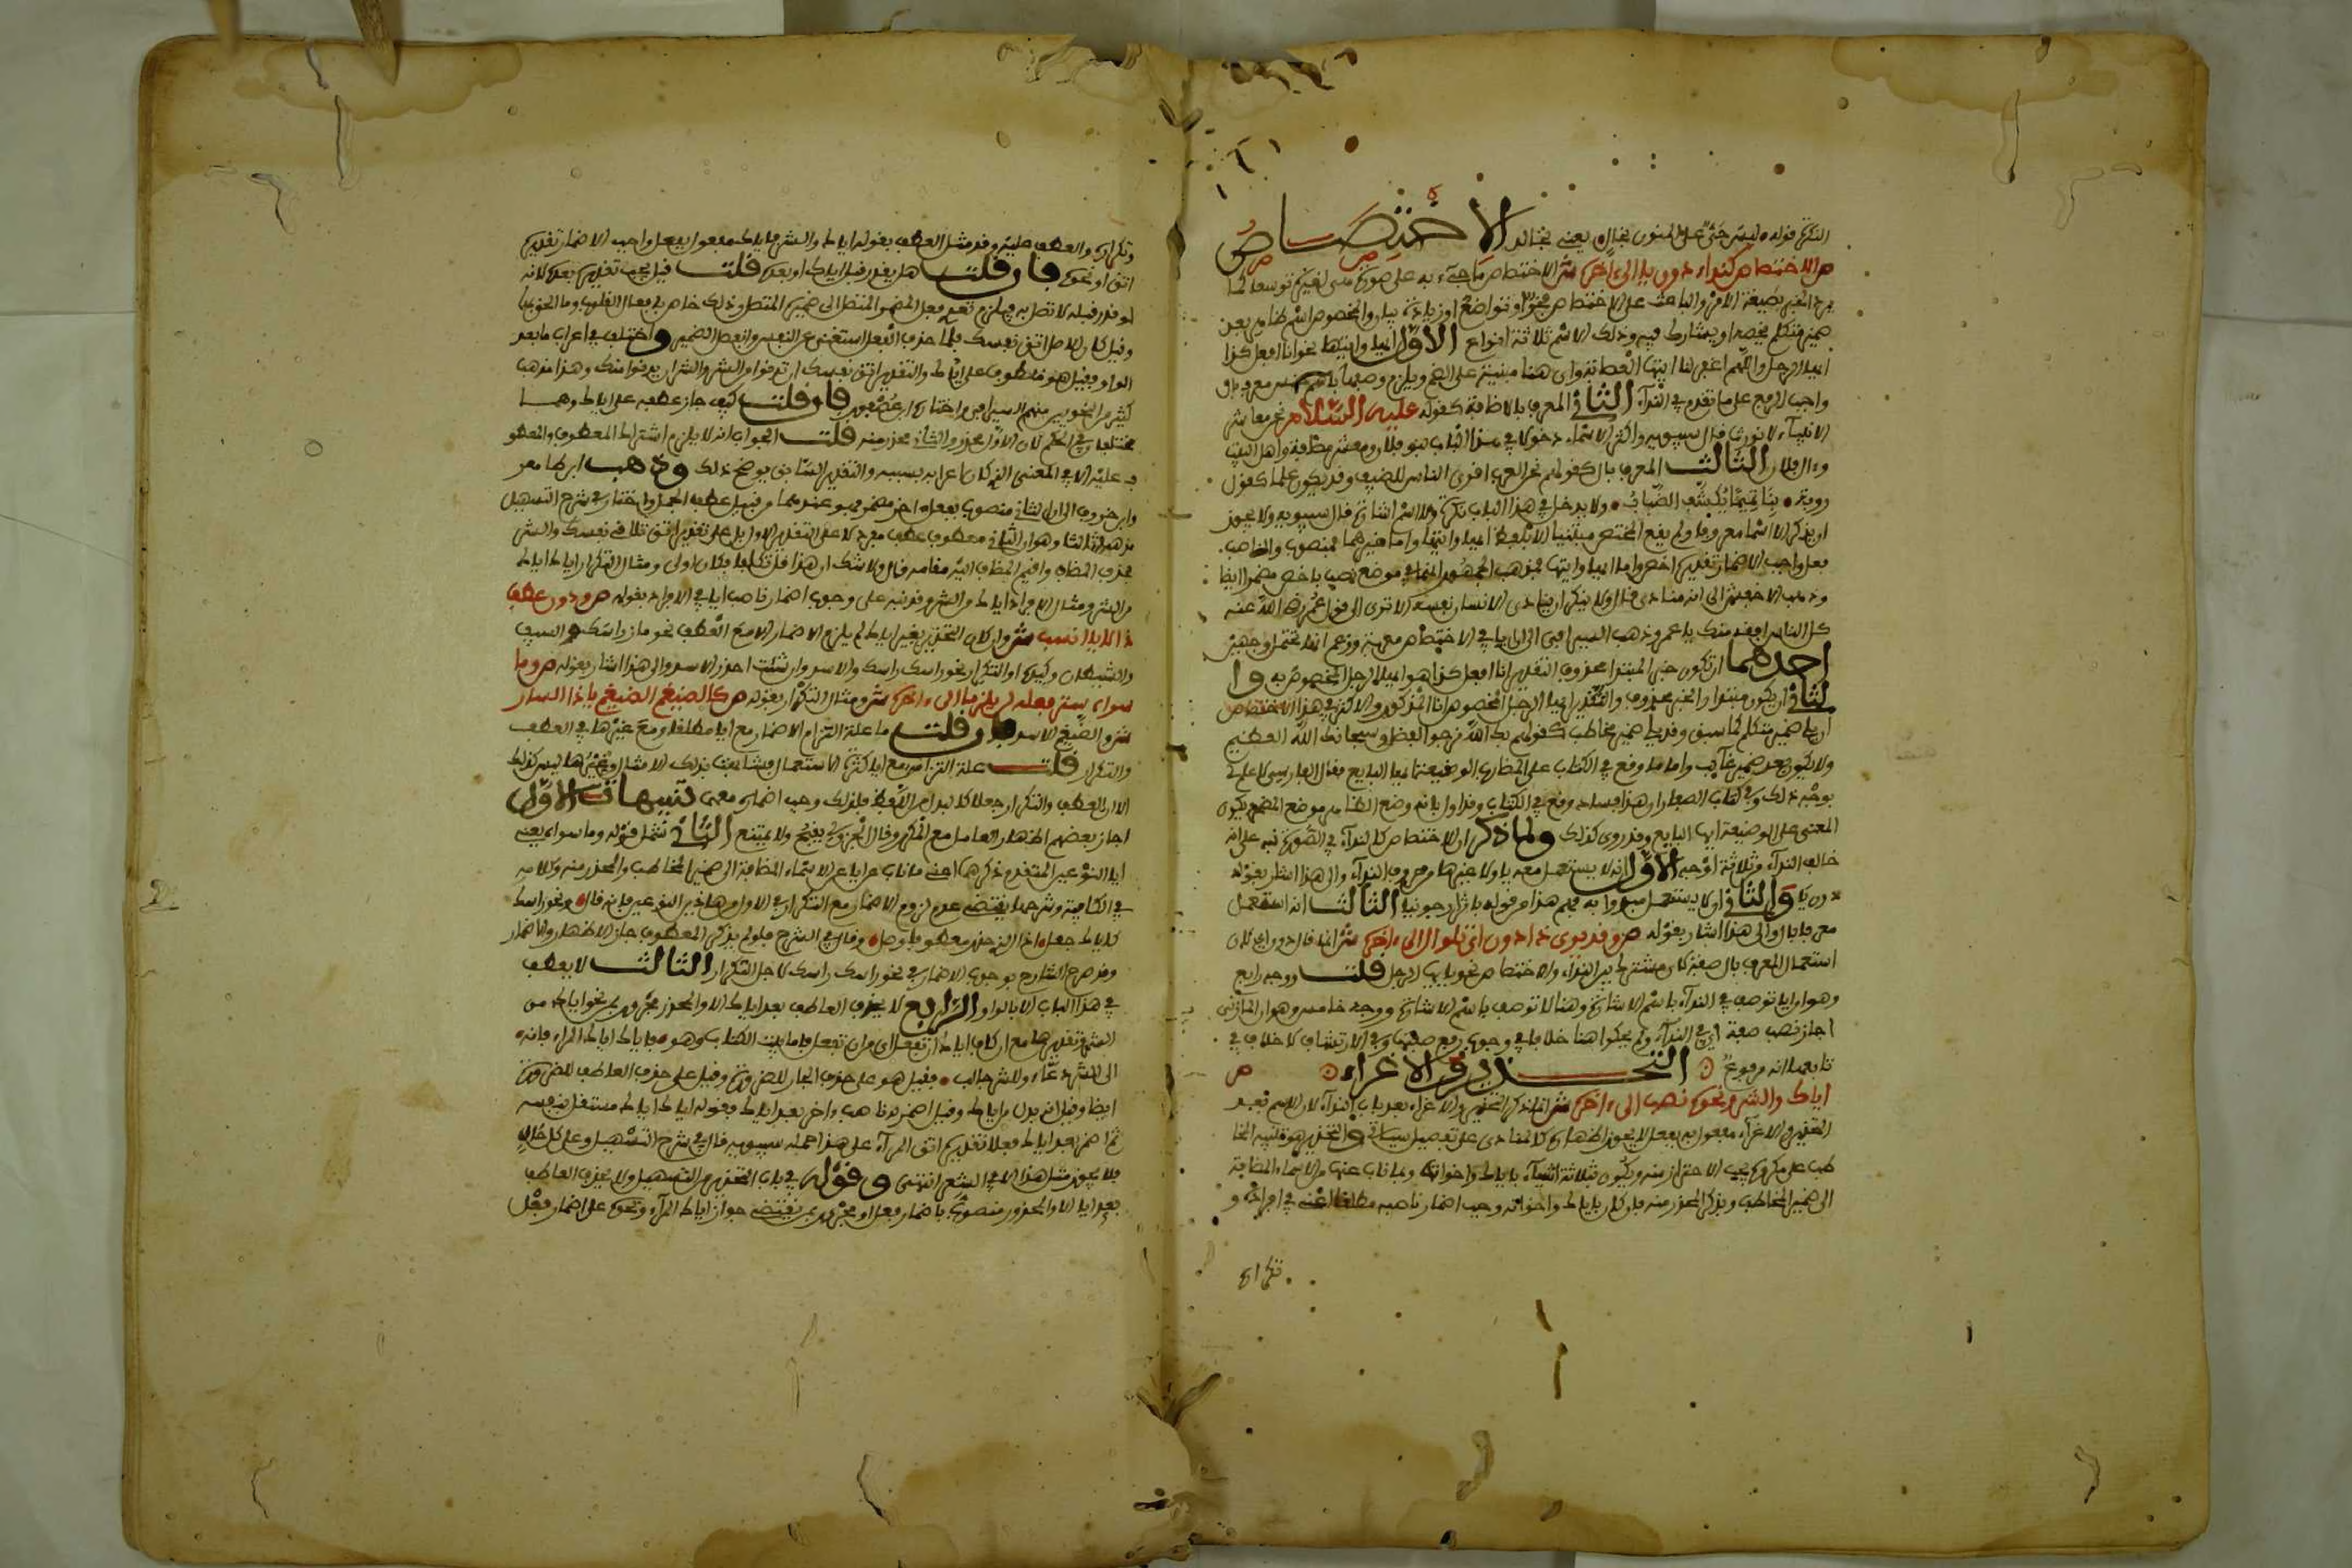 النكرة قوله وليس حتى على المنون يخالف يعني يخالف الاختصاص
ص الاختصاص كنداء دون يا الى ءاخره ش الاختصاص ما جيء به على صورة هي لغيره توسعا كما
يرد الخبر بصيغة الامر والباعث على الاختصاص فخر او تواضع او زيادة بيان والمخصوص اسم ظاهر بعد
ضمير متكلم يخصه او يشارك فيه وذلك الاسم ثلاثة انواع الاول ايها وايتها نحو انا افعل كذا
ايها الرجل واللهم اغفر لنا ايتها العصابة واي هنا مبنية على الضم ويلزم وصفها باسم جنس معرف بال
واجب الرفع على ما تقدم في النداء الثاني المعرف بالاضافة كقوله عليه السلام نحن معاشر
الانبياء لا نورث قال سيبويه واكثر الاسماء دخولا في هذا الباب بنو فلان ومعشر مضافة واهل البيت
وءال فلان الثالث المعرف بال كقولهم نحن العرب اقرى الناس للضيف وقد يكون علما كقول
روبة بنا تميما يكشف الضباب ولا يدخل في هذا الباب نكرة ولا اسم اشارة قال سيبويه ولا يجوز
ان يذكر الا اسما معروفا ولم يقع المختص مبنيا الا بلفظ ايها وايتها واما غيرهما فمنصوب والناصب
فعل واجب الاضمار تقديره اخص واما ايها وايتها فمذهب الجمهور انهما في موضع نصب باخص مضمرا ايضا
وذهب الاخفش الى انه منادى قال ولا ينكر ان ينادي الانسان نفسه الا ترى الى قول عمر رضي الله عنه
كل الناس افقه منك يا عمر وذهب السيرافي الى ان ايا في الاختصاص معربة وزعم انها تحتمل وجهين
احدهما ان تكون خبر المبتدا محذوف التقدير انا افعل كذا هو ايها الرجل المخصوص به وا
لثاني ان يكون مبتدا والخبر محذوف والتقدير ايها الرجل المخصوص انا المذكور والاكثر في هذا الاختصاص
ان يلي ضمير متكلم كما سبق وقد يلي ضمير مخاطب كقولهم بك الله نرجو الفضل وسبحانك الله العظيم
ولا يكون بعد ضمير غائب واما ما وقع في الكتاب على المضارب الوضيعة ايها البايع فقال الفارسي لا علم لي
بوجه ذلك وفي كتاب الصفار ان هذا فساد وقع في الكتاب وقد اول بانه وضع الظاهر موضع المضمر يكون
المعنى على الوضيعة ايها البايع وقد روي كذلك ولما ذكر ان الاختصاص كالنداء في الصورة نبه على انه
خالف النداء في ثلاثة اوجه الاول انه لا يستعمل معه يا ولا غيرها من حروف النداء والى هذا اشار بقوله
دون يا والثاني انه لا يستعمل مبدوا به فهم هذا من قوله باثر ارجونيا الثالث انه استعمل
معرفا بال والى هذا اشار بقوله ص وقد يرى ذا دون اي تلو ال الى ءاخره ش
استعمال المعرف بال صفة كان مشتركا بين النداء والاختصاص نحو يا ايها الرجل قلت ووجه رابع
وهو ان ايا توصف في النداء باسم الاشارة وهنا لا توصف باسم الاشارة ووجه خامس وهو ان المازني
اجاز نصب صفة اي في النداء ولم يحكوا هنا خلافا في وجوب رفع صفتها وفي الارتشاف لا خلاف في
تابعها انه مرفوع التحذير والاغراء ص
اياك والشر ونحوه نصب الى ءاخره ش انما ذكر التحذير والاغراء بعد باب النداء لان الاسم فيه
التحذير والاغراء مفعول به بفعل لا يجوز اظهاره كالمنادى على تفصيل سياتي والتحذير هو تنبيه المخا
طب على مكروه يجب الاحتراز منه ويكون بثلاثة اشياء باياك واخواتها وبما ناب عنها من الاسماء المضافة
الى ضمير المخاطب وبذكر المحذر منه فان كان باياك واخواته وجب اضمار ناصبه مطلقا اعني في افراده و
تكراره
وتكراره والعطف عليه وقد مثل العطف بقوله اياك والشر فاياك مفعول بفعل واجب الاضمار تقديره
اتق او نحوه فان قلت هل يقدر قبل اياك او بعده قلت قيل يجب تقديره بعده لانه
لو قدر قبله لاتصل به فيلزم تعدي فعل المضمر المتصل الى ضميره المتصل وذلك خاص بافعال القلوب وما الحق بها
وقيل كان الاصل اتق نفسك فلما حذف الفعل استغني عن النفس وانفصل الضمير واختلف في اعراب ما بعد
الواو فقيل هو معطوف على اياك والتقدير اتق نفسك ان تدنو من الشر والشر ان يدنو منك وهذا مذهب
كثير من النحويين منهم السيرافي واختاره ابن عصفور فان قلت كيف جاز عطفه على اياك وهما
مختلفان في الحكم لان الاول محذر والثاني محذر منه قلت الجواب انه لا يلزم اشتراك المعطوف والمعطو
ف عليه الا في المعنى الذي كان اعرابه بسببه والتقدير السابق يوضح ذلك وذهب ابن طاهر
وابن خروف الى ان الثاني منصوب بفعل اخر مضمر فهو عندهما من قبيل عطف الجمل واختار في شرح التسهيل
مذهبا ثالثا وهو ان الثاني معطوف عطف مفرد لا على التقدير الاول بل على تقدير اتق تلاقي نفسك والشر
فحذف المضاف واقيم المضاف اليه مقامه قال ولا شك ان هذا اقل تكلفا فكان اولى ومثال التكرار اياك اياك
من الشر ومثال الافراد اياك من الشر وقد نبه على وجوب اضمار ناصب ايا في الافراد بقوله ص ودون عطف
ذا لايا انسب ش وان كان التحذير بغير اياك لم يلزم الاضمار الا مع العطف نحو ماز راسك والسيف
والشيطان وكيده او التكرار نحو راسك راسك والاسد الاسد وان شئت احذر الاسد والى هذا اشار بقوله ص وما
سواه ستر فعله لن يلزما الى ءاخره ش ومثال التكرار بقوله ص كالضيغم الضيغم يا ذا السار
ش والضيغم الاسد فان قلت ما علة التزام الاضمار مع ايا مطلقا ومع غيرها في العطف
والتكرار قلت علة التزامه مع ايا كثرة الاستعمال فشابهت بذلك الامثال وغيرها ليس كذلك
الا ان العطف والتكرار جعلا كالبدل من اللفظ فلذلك وجب اضماره معهما تنبيهات الاول
اجاز بعضهم اظهار العامل مع المكرر وقال الجزولي يقبح ولا يمتنع الثاني شمل قوله وما سواه يعني
ايا النوعين المتقدم ذكرهما اعني ما ناب عن ايا من الاسماء المضافة الى ضمير المخاطب والمحذر منه وكلامه
في الكافية وشرحها يقتضي عدم لزوم الاضمار مع التكرار في الاول من هاذين النوعين فانه قال ونحو راسك
كاياك جعل اذا الذي حذر معطوفا وصل وقال في الشرح فلو لم يذكر المعطوف جاز الاظهار والاضمار
وقد صرح الشارح بوجوب الاضمار في نحو راسك راسك لاجل التكرار الثالث لا يعطف
في هذا الباب الا بالواو الرابع لا يحذف العاطف بعد اياك الا والمحذر مجرور بمن نحو اياك من
الشر وتقديرها مع ان كاف اياك ان تفعل اي من ان تفعل فاما بيت الكتاب وهو فاياك اياك المراء فانه
الى الشر دعاء وللشر جالب فقيل هو على حذف الجار للضرورة وقيل على حذف العاطف للضرورة
ايضا وقيل انه بدل من اياك وقيل اضمر له ناصب واخر بعد اياك وقوله اياك اياك مستقل بنفسه
ثم اضمر بعد اياك فعلا تقديره اتق المراء على هذا حمله سيبويه قال في شرح التسهيل وعلى كل حال
فلا يجوز مثل هذا الا في الشعر انتهى وقوله في باب التحذير من التسهيل ولا يحذف العاطف
بعد ايا الا والمحذور منصوب باضمار فعل او مجرور بمن يقتضي جواز اياك المراء ونحوه على اضمار فعل